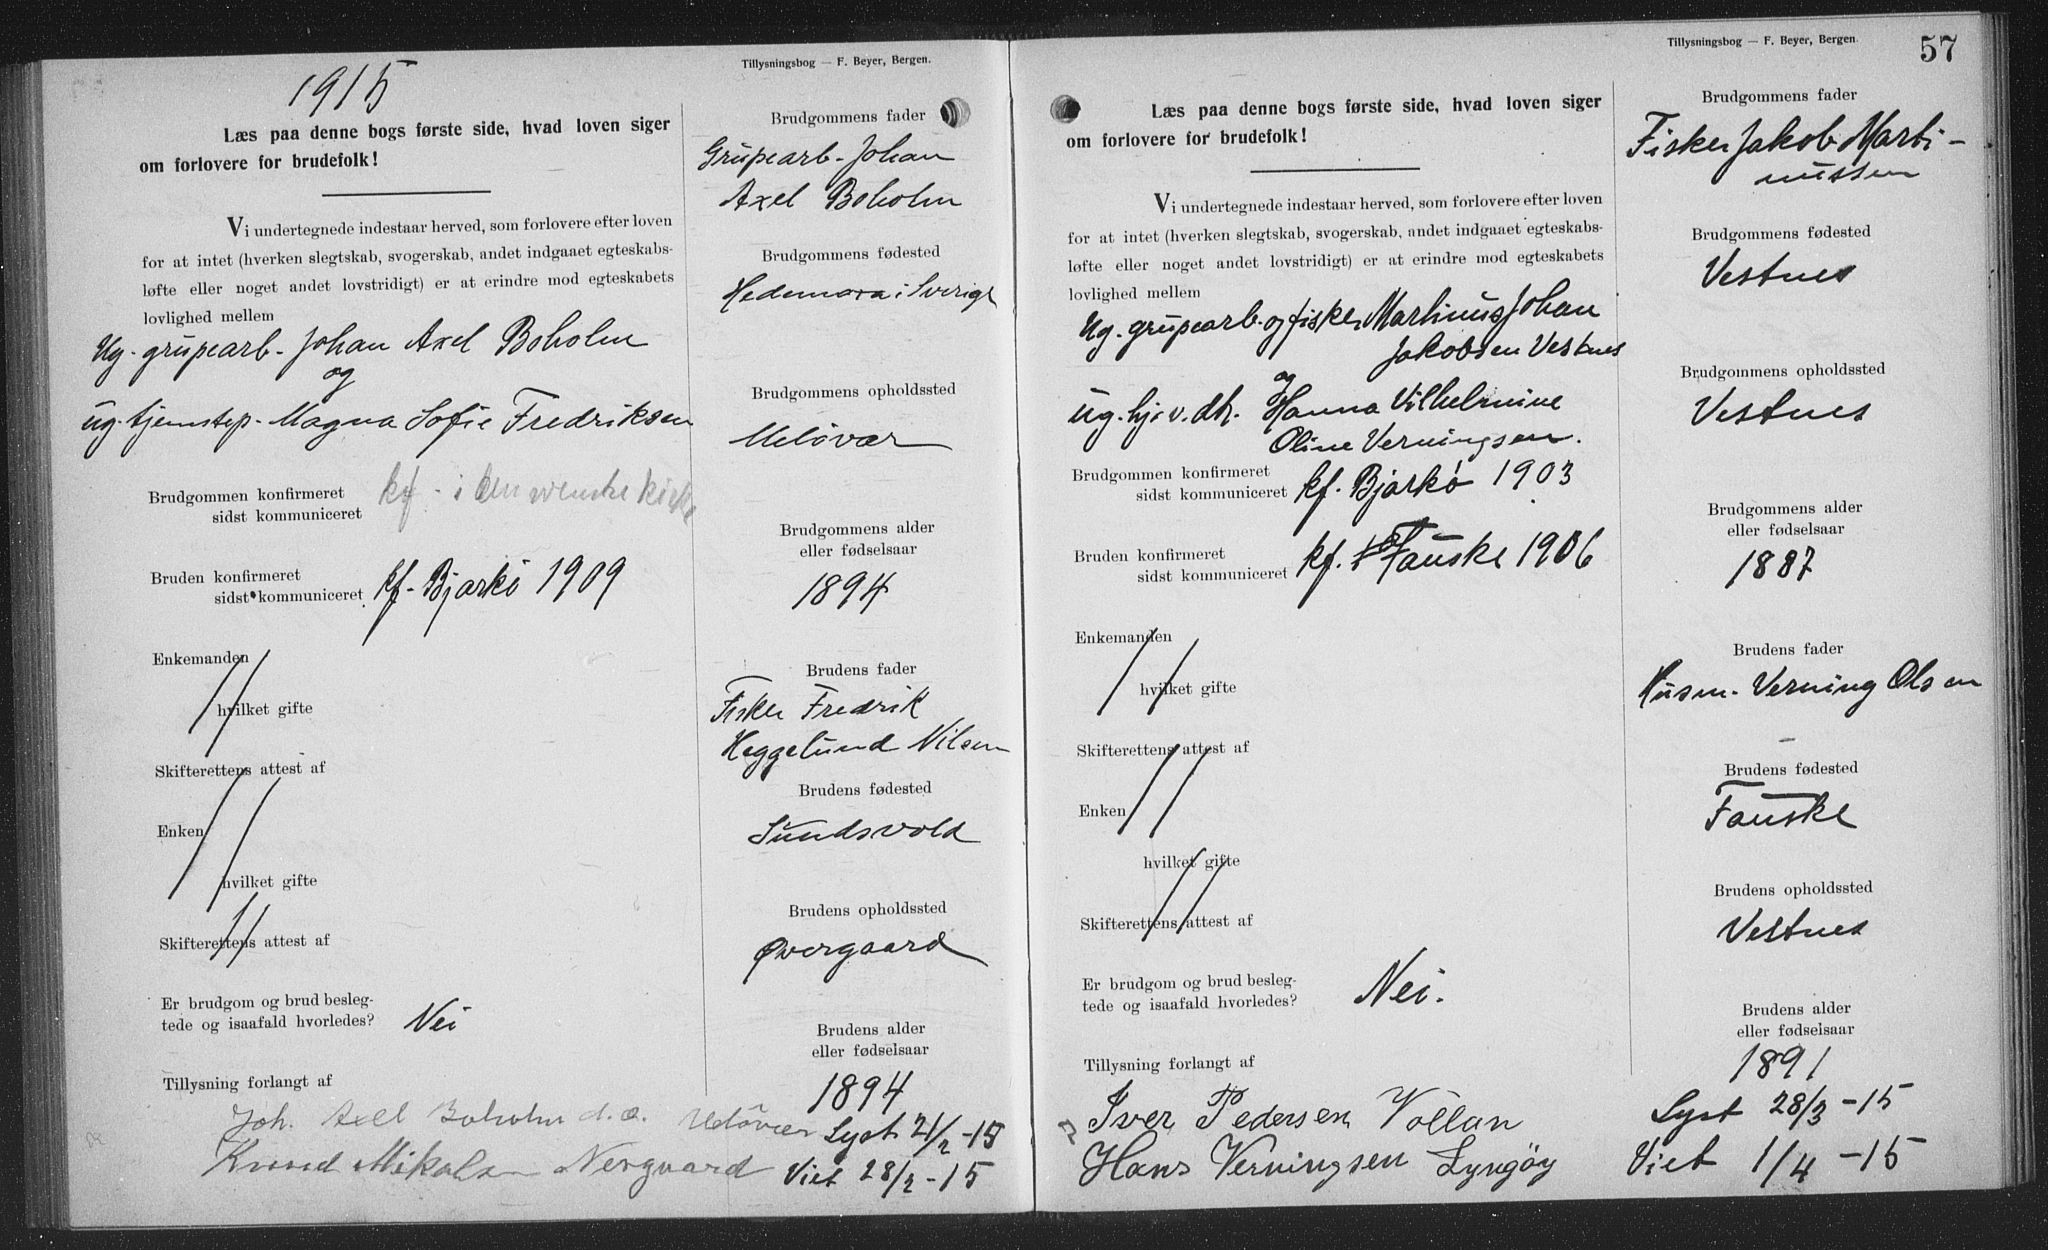 1915
Læs paa denne bogs første side, hvad loven siger
om forlovere for brudefolk!
Vi undertegnede indestaar herved, som forlovere efter loven
for at intet (hverken slegtskab, svogerskab, andet indgaaet egteskabs-
løfte eller noget andet lovstridigt) er at erindre mod egteskabets
lovlighed mellem
Ug. grupearb. Johan Axel Boholm
og
ug. tjenstep. Magna Sofie Fredriksen
Brudgommen konfirmeret
sidst kommuniceret
kf. i den svenske kirke
Bruden konfirmeret
sidst kommuniceret
kf. Bjarkö 1909
Enkemanden
hvilket gifte
Skifterettens attest af
Enken
hvilket gifte
Skifterettens attest af
Er brudgom og brud besleg-
tede og isaafald hvorledes?
Nei
Tillysning forlangt af
Joh. Axel Boholm d.æ. Meløvær
Knud Mikalsen Nergaard
Tillysningsbog — F. Beyer, Bergen.
Brudgommens fader
Grupearb. Johan
Axel Boholm
Brudgommens fødested
Hedemora i Sverige
Brudgommens opholdssted
Meløvær
Brudgommens alder
eller fødselsaar
1894
Brudens fader
Fisker Fredrik
Heggelund Nilsen
Brudens fødested
Sundsvold
Brudens opholdssted
Øvergaard
Brudens alder
eller fødselsaar
1894
Lyst 21/2 -15
Viet 28/2 -15
Læs paa denne bogs første side, hvad loven siger
om forlovere for brudefolk!
Vi undertegnede indestaar herved, som forlovere efter loven
for at intet (hverken slegtskab, svogerskab, andet indgaaet egteskabs-
løfte eller noget andet lovstridigt) er at erindre mod egteskabets
lovlighed mellem
Ug. grupearb. og fisker Martinus Johan
Jakobsen Vestnes
og
ug. hj. v. dtr. Hanna Vilhelmine
Oline Verningsen.
Brudgommen konfirmeret
sidst kommuniceret
kf. Bjarkö 1903
Bruden konfirmeret
sidst kommuniceret
kf. Fauske 1906
Enkemanden
hvilket gifte
Skifterettens attest af
Enken
hvilket gifte
Skifterettens attest af
Er brudgom og brud besleg-
tede og isaafald hvorledes?
Nei.
Tillysning forlangt af
Iver Pedersen Vollan
Hans Verningsen Lyngöy
Tillysningsbog — F. Beyer, Bergen.
57
Brudgommens fader
Fisker Jakob Marti-
nussen
Brudgommens fødested
Vestnes
Brudgommens opholdssted
Vestnes
Brudgommens alder
eller fødselsaar
1887
Brudens fader
Husm. Verning Olsen
Brudens fødested
Fauske
Brudens opholdssted
Vestnes
Brudens alder
eller fødselsaar
1891
Lyst 28/3 -15
Viet 1/4 -15